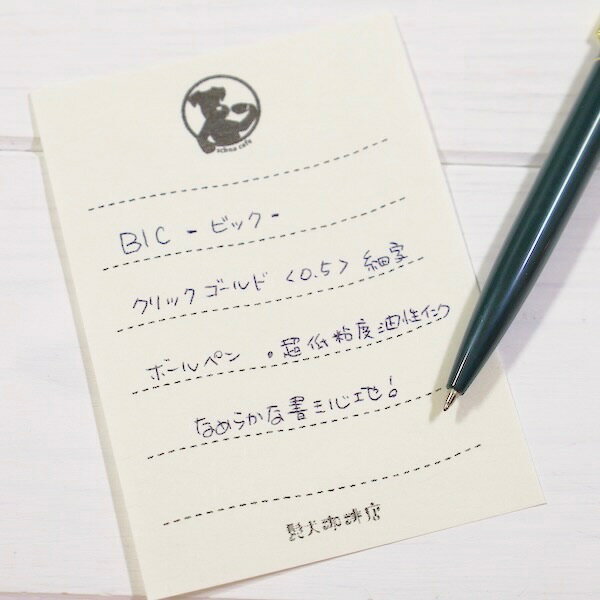 schna cafe
BIC - ビック -
クリックゴールド <0.5> 細字
ボールペン 。超低粘度油性インク
なめらかな書き心地!
髭犬珈琲店